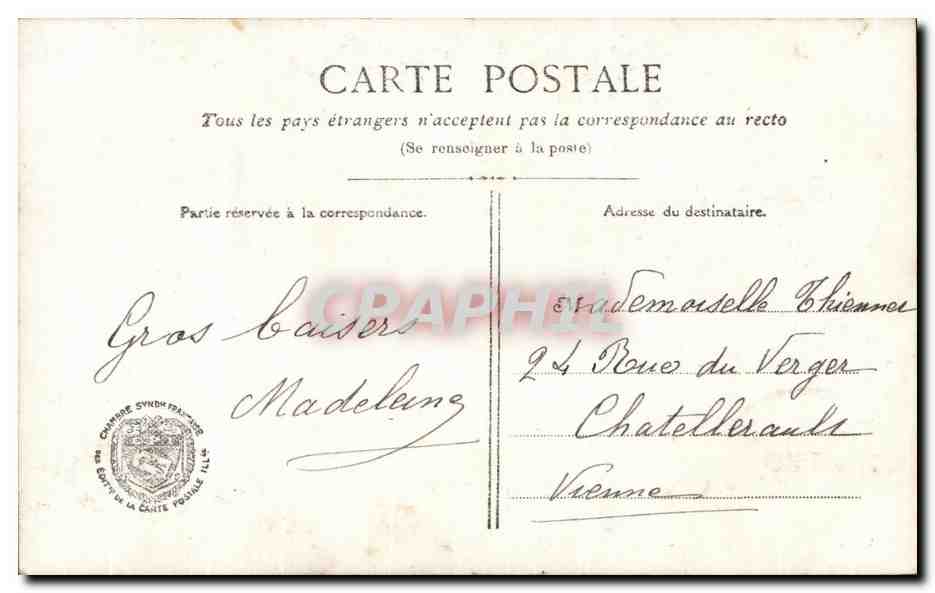 CARTE POSTALE
Tous les pays étrangers n'acceptent pas la correspondance au recto
(Se renseigner à la poste)
Partie réservée à la correspondance.
Adresse du destinataire.
CPAPHIL
Gros baisers
Madeleine
Mademoiselle Thiennet
24 Rue du Verger
Chatellerault
Vienne
CHAMBRE SYNDle FRANÇAISE
DES ÉDITrs DE LA CARTE POSTALE ILLée